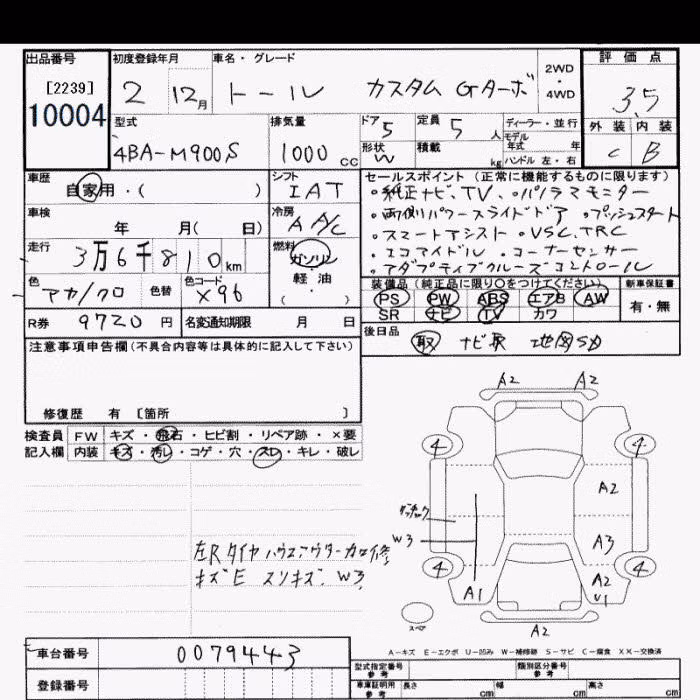 出品番号 初度登録年月 車名・グレード 2WD・4WD 評価点
[2239]
10004 2 12月 トール カスタム Gターボ 3.5
型式 排気量 ドア 5 定員 5人 ディーラー・並行 外装 内装
モデル年式 年
4BA-M900S 1000cc 形状 W 積載 kg ハンドル 左・右 C B
車歴 自家用・( ) シフト IAT セールスポイント (正常に機能するものに限ります)
・純正ナビ、TV、・パノラマモニター
車検 年 月( 日) 冷房 AA/C ・両側パワースライドドア ・プッシュスタート
・スマートアシスト ・VSC、TRC
走行 3万6千810km 燃料 ガソリン ・エコアイドル ・コーナーセンサー
軽油 ・アダプティブクルーズコントロール
( )
色 アカ/クロ 色替 色コード X96 装備品(純正品に限り○をつけてください) 新車保証書
PS PW ABS エアB AW 有・無
R券 9720円 名変通知期限 月 日 SR ナビ TV カワ
後日品 取 ナビ取 地図SD
注意事項申告欄(不具合内容等は具体的に記入して下さい)
修復歴 有 [箇所 ]
検査員 FW キズ・飛石・ヒビ割・リペア跡・×要
記入欄 内装 キズ・汚レ・コゲ・穴・スレ・キレ・破レ
A2 A2
4 4
A2
W3 A3
左Rタイヤハウスアウターカロ修
キズE スリキズ、W3
4 4
A1 A2
U1
スペア
A2
A-キズ E-エクボ U-凹み W-補修跡 S-サビ C-腐食 XX-交換済
車台番号 0079443
型式指定番号 参考 類別区分番号 参考
登録番号 車庫証明用 参考 長さ cm 幅 cm 高さ cm